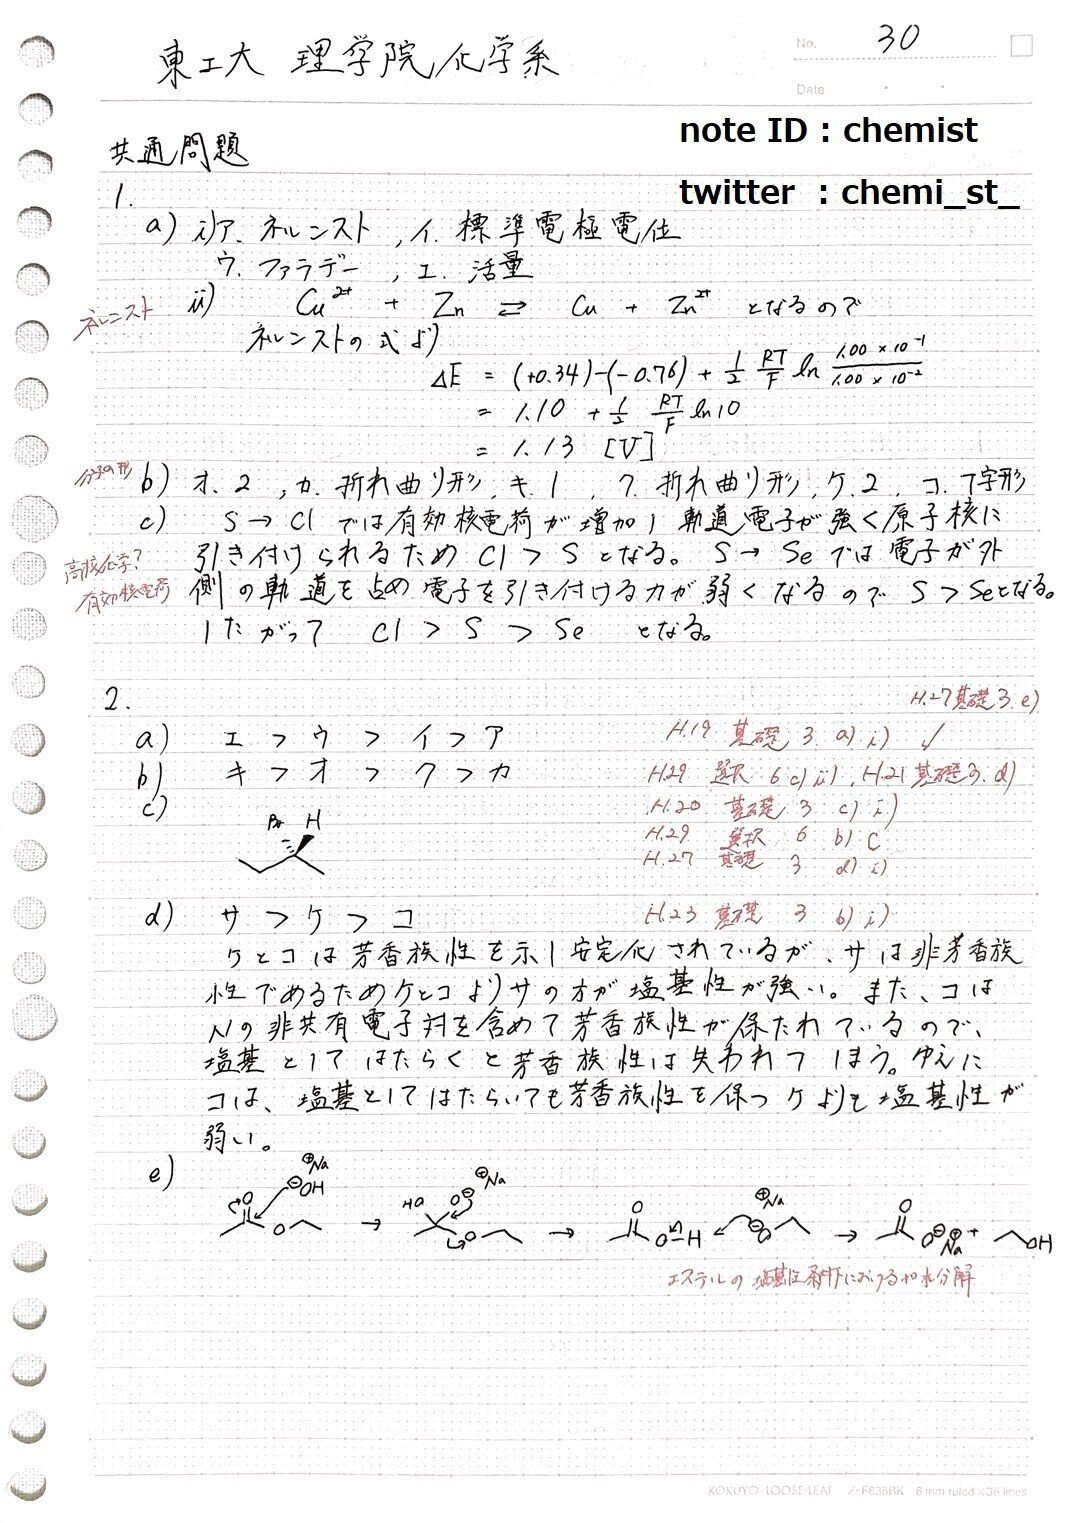 No. 30
東工大 理学院 化学系
Date
note ID : chemist
共通問題
twitter : chemi_st_
1.
a) i)ア. ネルンスト , イ. 標準電極電位
ウ. ファラデー , エ. 活量
ネルンスト
ii) Cu²⁺ + Zn ⇄ Cu + Zn²⁺ となるので
ネルンストの式より
ΔE = (+0.34)-(-0.76) + 1/2 RT/F ln 1.00 × 10⁻¹/1.00 × 10⁻²
= 1.10 + 1/2 RT/F ln10
= 1.13 [V]
分子の形
b) オ. 2 , カ. 折れ曲り形, キ. 1 , ク. 折れ曲り形, ケ. 2 , コ. T字形
c) S → Cl では有効核電荷が増加し軌道電子が強く原子核に
高校化学?
引き付けられるため Cl > S となる。 S → Se では電子が外
有効核電荷
側の軌道を占め電子を引き付ける力が弱くなるので S > Seとなる。
したがって Cl > S > Se となる。
2.
H.27基礎 3. e)
a) エ > ウ > イ > ア
H.19 基礎 3. a) i) ✓
b) キ > オ > ク > カ
H.29 選択 6 c) ii), H.21 基礎 3. d)
c)
H.20 基礎 3 c) i)
Br H
H.29 選択 6 b) C
H.27 基礎 3 d) i)
d) サ > ケ > コ
H.23 基礎 3 b) i)
ケとコは芳香族性を示し安定化されているが、サは非芳香族
性であるためケとコよりサの方が塩基性が強い。また、コは
Nの非共有電子対を含めて芳香族性が保たれているので、
塩基としてはたらくと芳香族性は失われてしまう。ゆえに
コは、塩基としてはたらいても芳香族性を保つケよりも塩基性が
弱い。
e)
⊕Na
⊖OH
O
O
→
HO O⊖ ⊕Na
O
→
O
O-H
⊕Na
⊖O
→
O
O⊖ ⊕Na + OH
エステルの塩基性条件における加水分解
KOKUYO LOOSE-LEAF ノ-F836BK 6 mm ruled ×36 lines